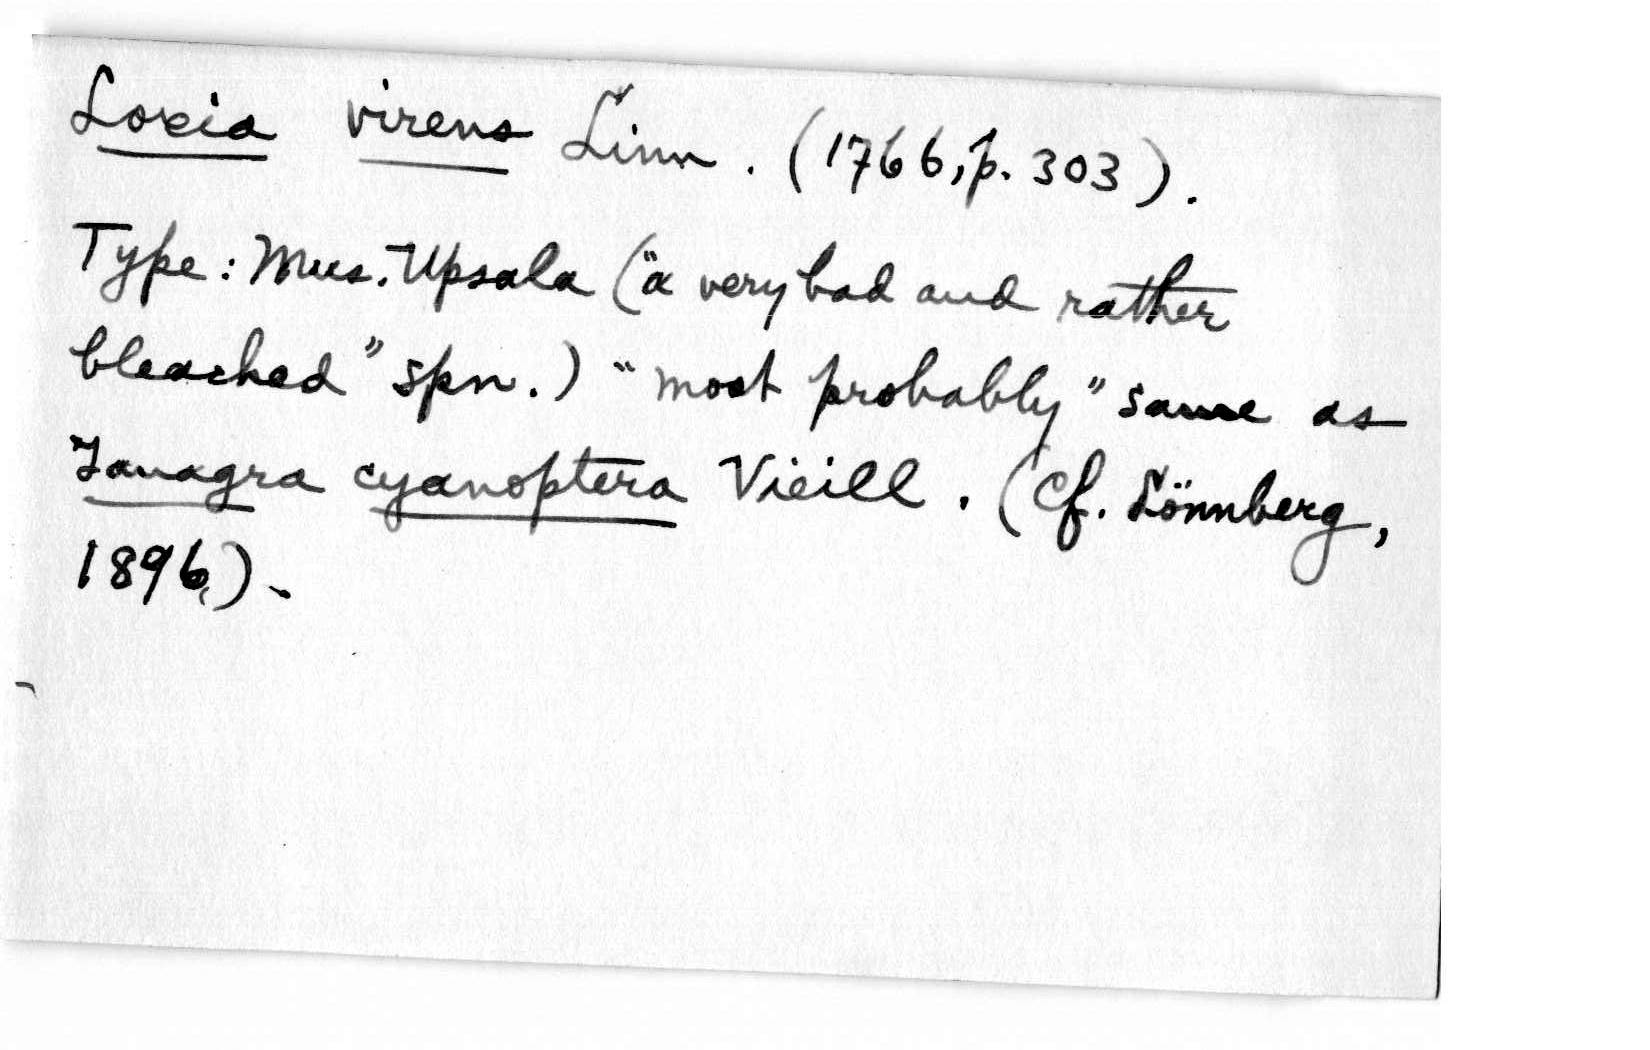 Loxia virens Linn. (1766, p. 303).
Type: Mus. Upsala ("a very bad and rather
bleached" spn.) "most probably" same as
Tanagra cyanoptera Vieill. (Cf. Lönnberg,
1896).